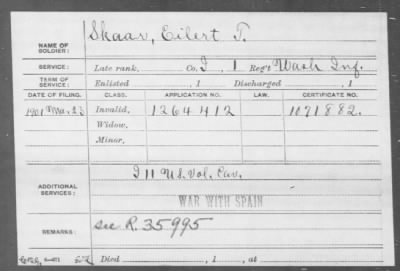 NAME OF SOLDIER: Skaar, Eilert T.
SERVICE: Late rank, Co. I, 1 Reg't Wash Inf.
TERM OF SERVICE: Enlisted , 1 Discharged , 1
DATE OF FILING. CLASS. APPLICATION NO. LAW. CERTIFICATE NO.
1901 Mar. 23 Invalid, 1264412 1071882.
Widow,
Minor,
ADDITIONAL SERVICES: I 11 U.S. Vol. Cav.
WAR WITH SPAIN
REMARKS: see R. 35995
Died , 1 , at